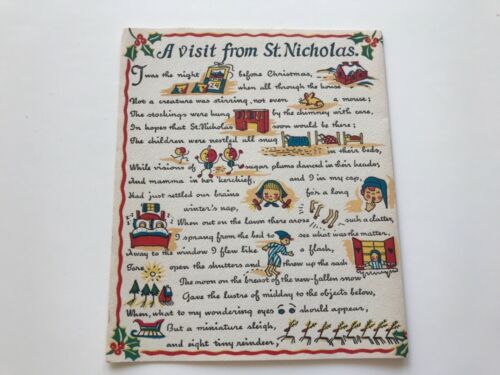 A visit from St. Nicholas.
Twas the night before Christmas,
when all through the house
Not a creature was stirring, not even a mouse;
The stockings were hung by the chimney with care,
In hopes that St. Nicholas soon would be there;
The children were nestled all snug
in their beds,
While visions of sugar plums danced in their heads;
And mamma in her kerchief, and I in my cap,
Had just settled our brains for a long
winter's nap,
When out on the lawn there arose such a clatter,
I sprang from the bed to see what was the matter.
Away to the window I flew like a flash,
Tore open the shutters and threw up the sash
The moon on the breast of the new-fallen snow
Gave the lustre of midday to the objects below,
When, what to my wondering eyes should appear,
But a miniature sleigh,
and eight tiny reindeer,